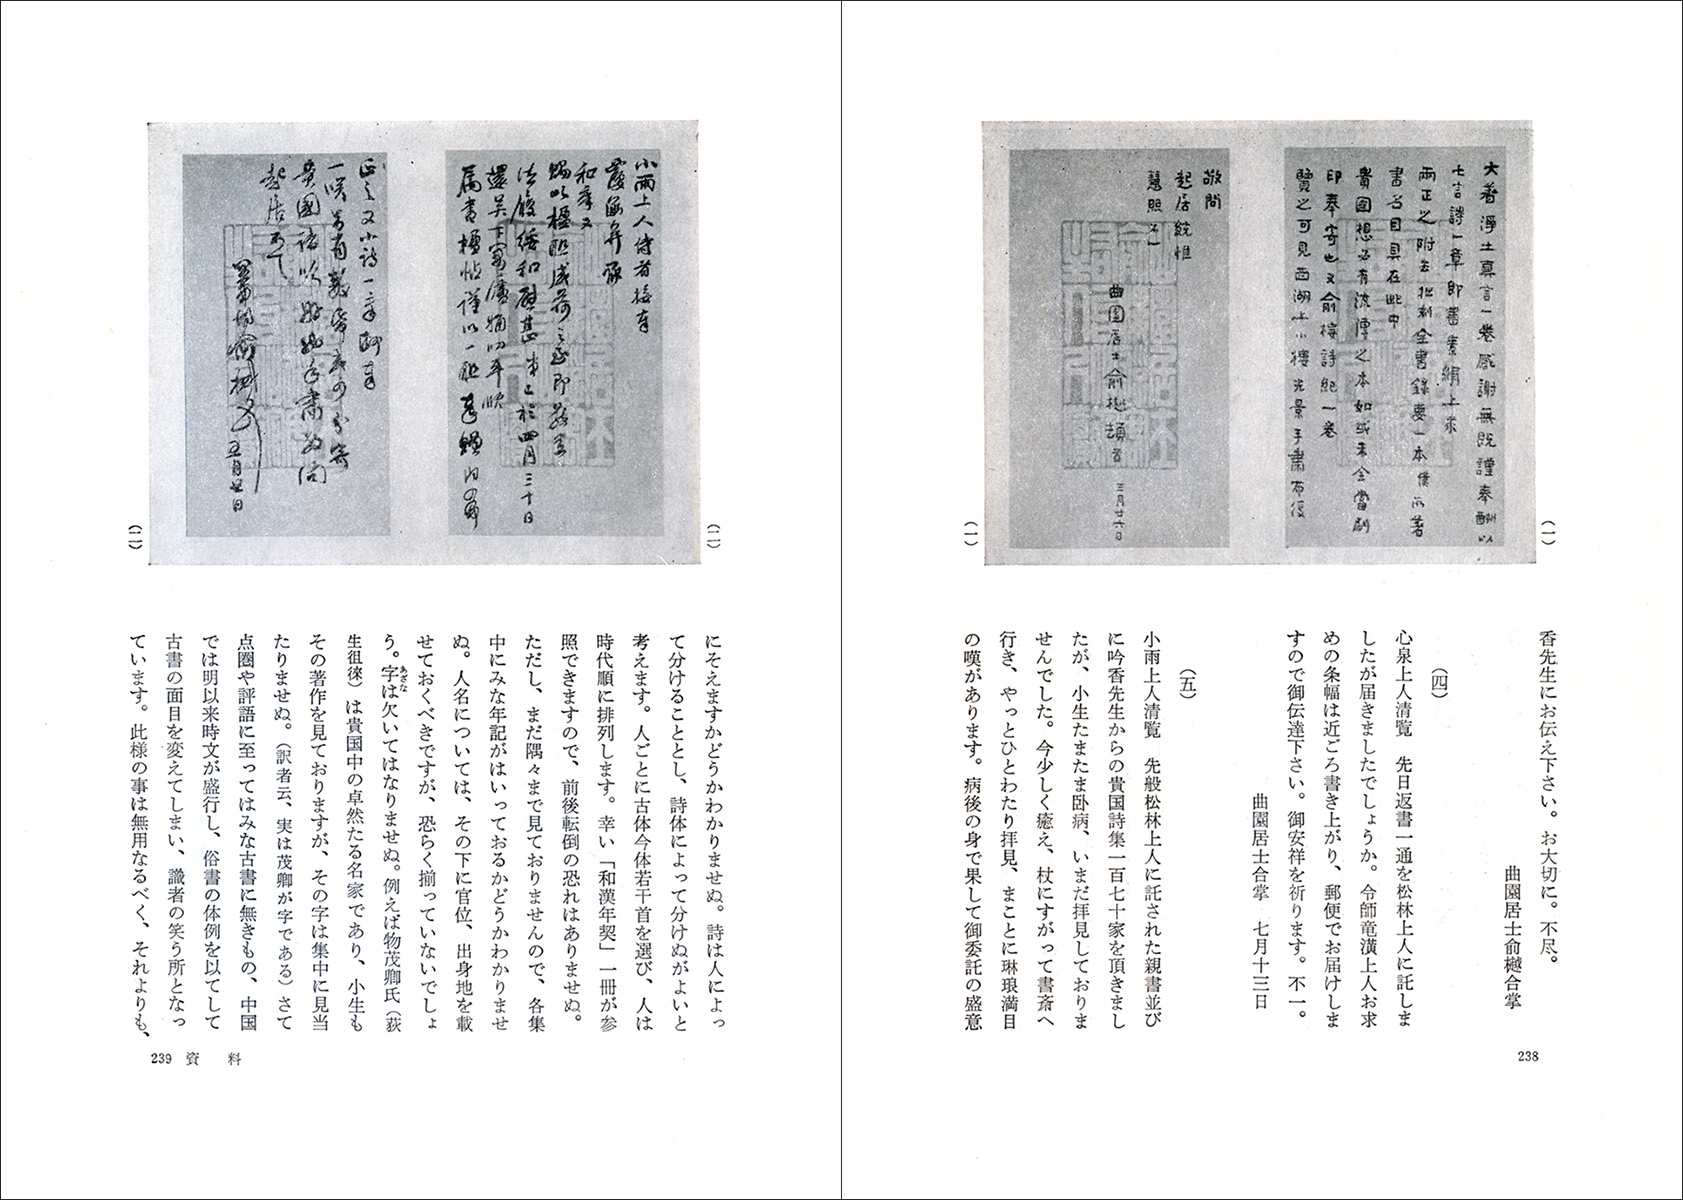 大著浄土真言一巻感謝無既謹奉酬以
七言詩一章即書素絹上求
両正之附去拙刻全書錄要一本僕所著
書名目具在此中
貴國想必有流傳之本如或未全當刷
印奉寄也又俞樓詩紀一卷
覽之可見西湖上小樓光景手肅布復
敬問
起居統惟
慧照不一
曲園居士俞樾頓首 三月廿六日
(一)
(一)
香先生にお伝え下さい。お大切に。不尽。
曲園居士俞樾合掌
(四)
心泉上人清覧 先日返書一通を松林上人に託しま
したが届きましたでしょうか。令師竜潢上人お求
めの条幅は近ごろ書き上がり、郵便でお届けしま
すので御伝達下さい。御安祥を祈ります。不一。
曲園居士合掌 七月十三日
(五)
小雨上人清覧 先般松林上人に託された親書並び
に吟香先生からの貴国詩集一百七十家を頂きまし
たが、小生たまたま臥病、いまだ拝見しておりま
せんでした。今少しく癒え、杖にすがって書斎へ
行き、やっとひとわたり拝見、まことに琳琅満目
の嘆があります。病後の身で果して御委託の盛意
238
小雨上人侍者接奉
覆函并承
和章又
賜以楹聯感荷之至即辰
法履綏和慰甚
還吳下寓廬
属書楹帖謹以一聯
正之又小詩一章附奉
一咲
貴國諸吟好
起居不一
五月廿日
(二)
(二)
にそえますかどうかわかりませぬ。詩は人によっ
て分けることとし、詩体によって分けぬがよいと
考えます。人ごとに古体今体若干首を選び、人は
時代順に排列します。幸い「和漢年契」一冊が参
照できますので、前後転倒の恐れはありませぬ。
ただし、まだ隅々まで見ておりませんので、各集
中にみな年記がはいっておるかどうかわかりませ
ぬ。人名については、その下に官位、出身地を載
せておくべきですが、恐らく揃っていないでしょ
う。字あざなは欠いてはなりませぬ。例えば物茂卿氏（荻
生徂徠）は貴国中の卓然たる名家であり、小生も
その著作を見ておりますが、その字は集中に見当
たりませぬ。（訳者云、実は茂卿が字である）さて
点圏や評語に至ってはみな古書に無きもの、中国
では明以来時文が盛行し、俗書の体例を以てして
古書の面目を変えてしまい、識者の笑う所となっ
ています。此様の事は無用なるべく、それよりも、
239 資 料